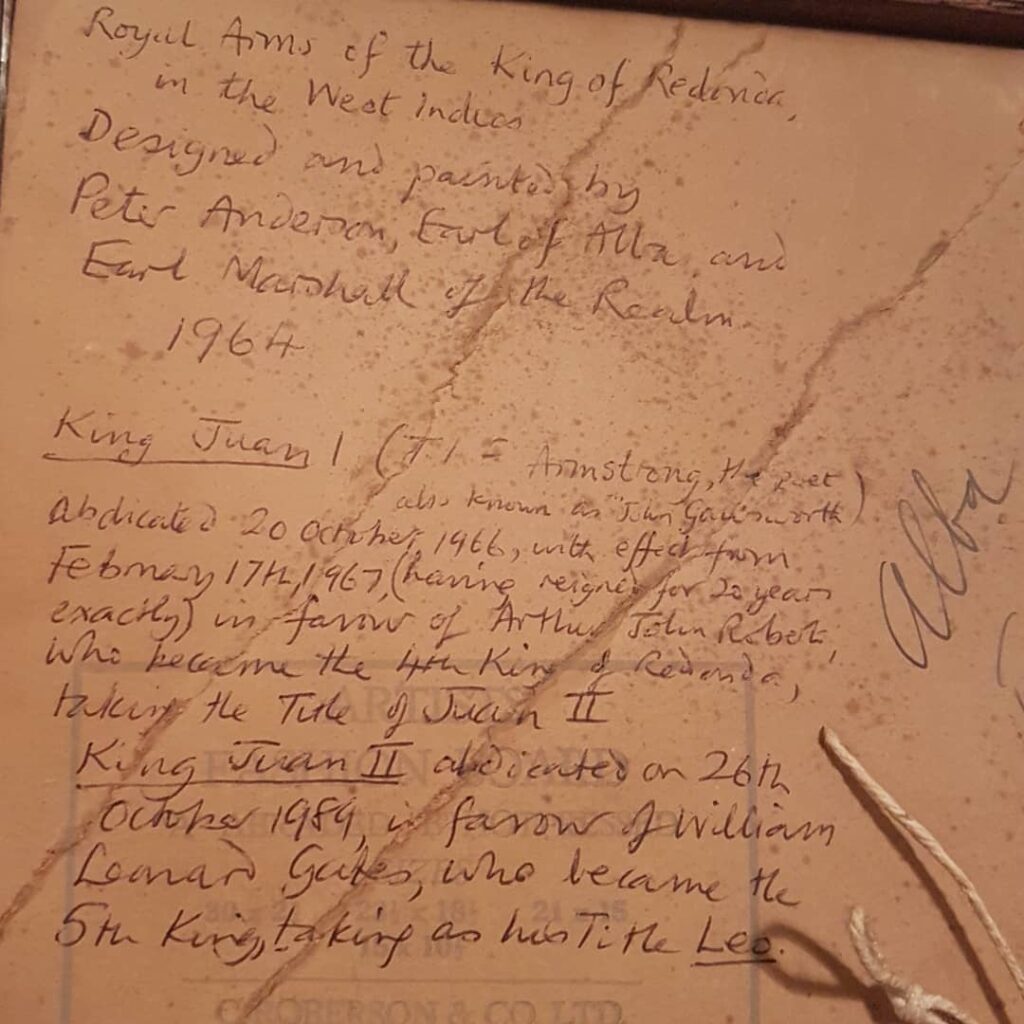 Royal Arms of the King of Redonda,
in the West Indies
Designed and painted by
Peter Anderson, Earl of Alba and
Earl Marshall of the Realm.
1964
King Juan I (T I = Armstrong, the poet
also known as "John Gawsworth)
abdicated 20 October, 1966, with effect from
February 17th, 1967, (having reigned for 20 years
exactly) in favour of Arthur John Roberts,
who became the 4th King of Redonda,
taking the Title of Juan II
King Juan II abdicated on 26th
October 1989, in favour of William
Leonard Gates, who became the
5th King, taking as his Title Leo.
Alba
ARTISTS'
FASHION BOARD
30 x 21
21 x 15
C. ROBERSON & CO. LTD.